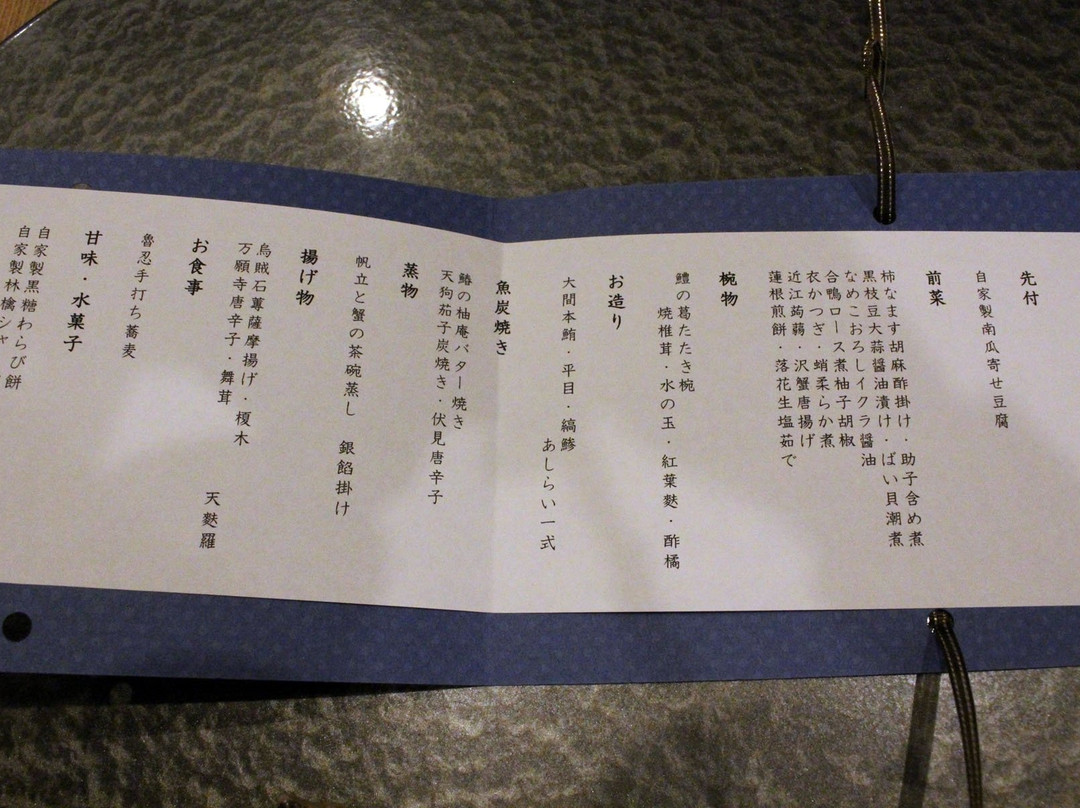 先付
自家製南瓜寄せ豆腐
前菜
柿なます胡麻酢掛け・助子含め煮
黒枝豆大蒜醤油漬け・ばい貝潮煮
なめこおろしイクラ醤油
合鴨ロース煮柚子胡椒
衣かつぎ・蛸柔らか煮
近江蒟蒻・沢蟹唐揚げ
蓮根煎餅・落花生塩茹で
椀物
鱧の葛たたき椀
焼椎茸・水の玉・紅葉麩・酢橘
お造り
大間本鮪・平目・縞鯵
あしらい一式
魚炭焼き
鰆の柚庵バター焼き
天狗茄子炭焼き・伏見唐辛子
蒸物
帆立と蟹の茶碗蒸し 銀餡掛け
揚げ物
烏賊石蓴薩摩揚げ・榎木
万願寺唐辛子・舞茸 天麩羅
お食事
魯忍手打ち蕎麦
甘味・水菓子
自家製黒糖わらび餅
自家製林檎シャ